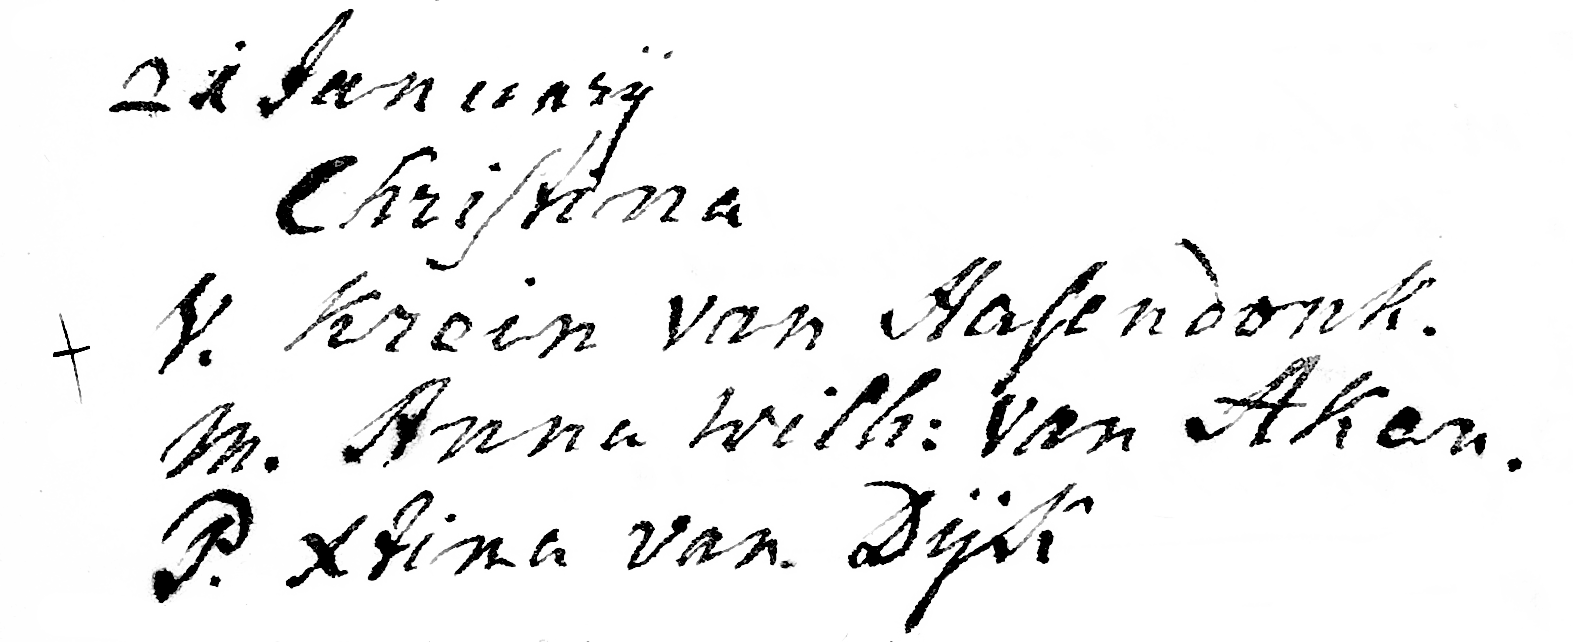 21 Januarÿ
Christina
V. Krein van Hasendonk.
M. Anna Wilh: van Aken.
P. Xtina van Dÿk